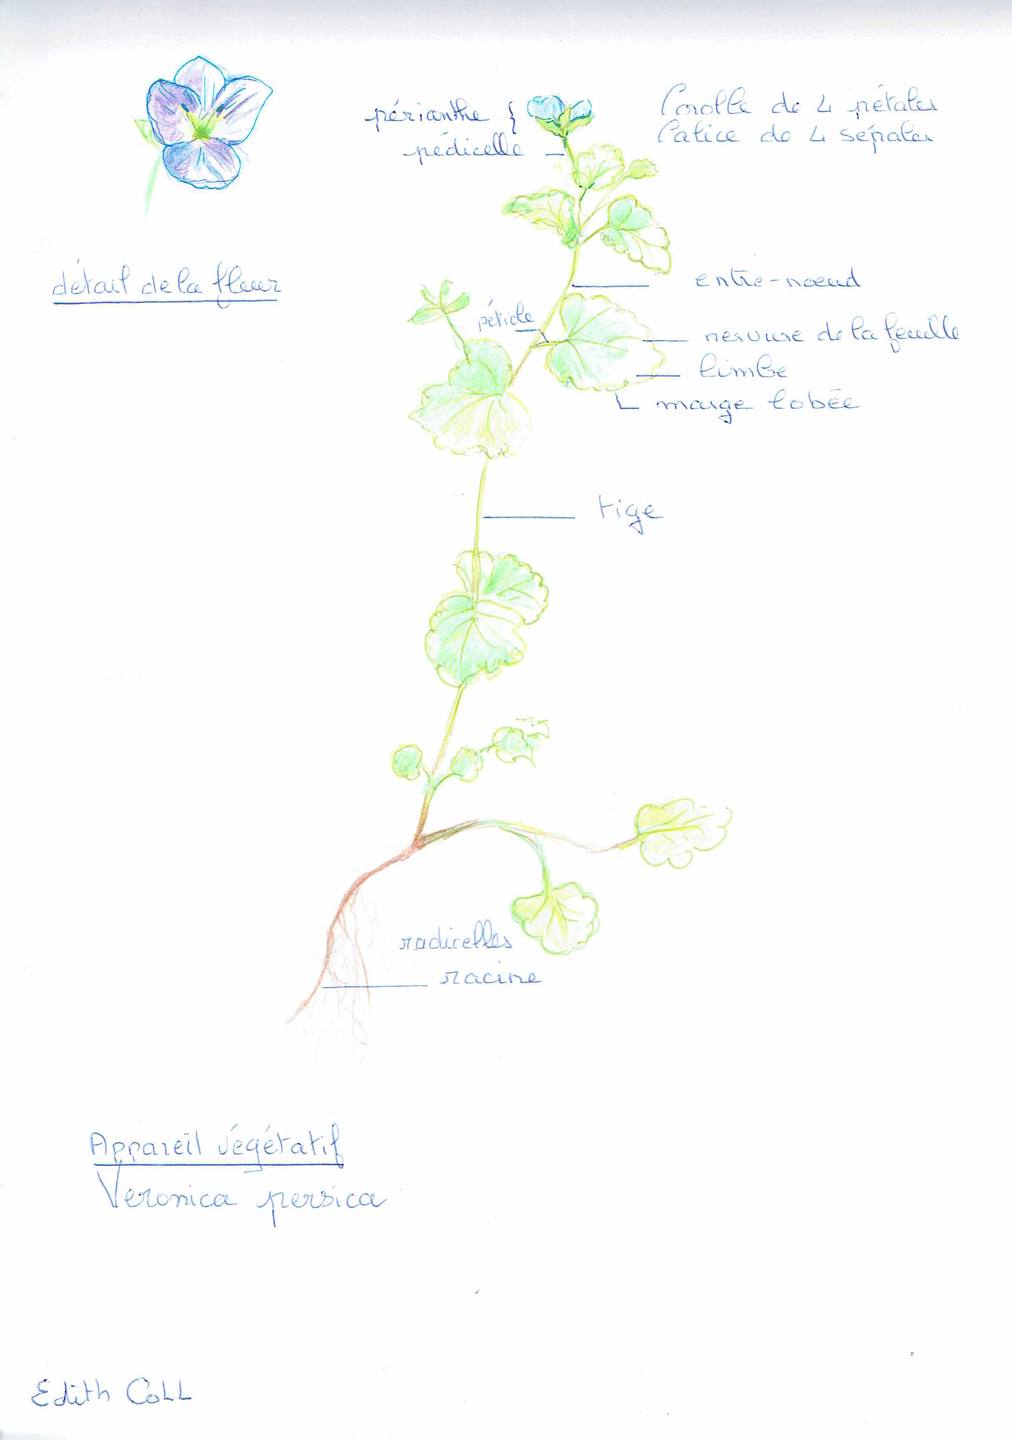 périanthe {
Corolle de 4 pétales
pédicelle
Calice de 4 sépales
détail de la fleur
entre-noeud
pétiole
nervure de la feuille
limbe
marge lobée
tige
radicelles
racine
Appareil végétatif
Veronica persica
Edith Coll